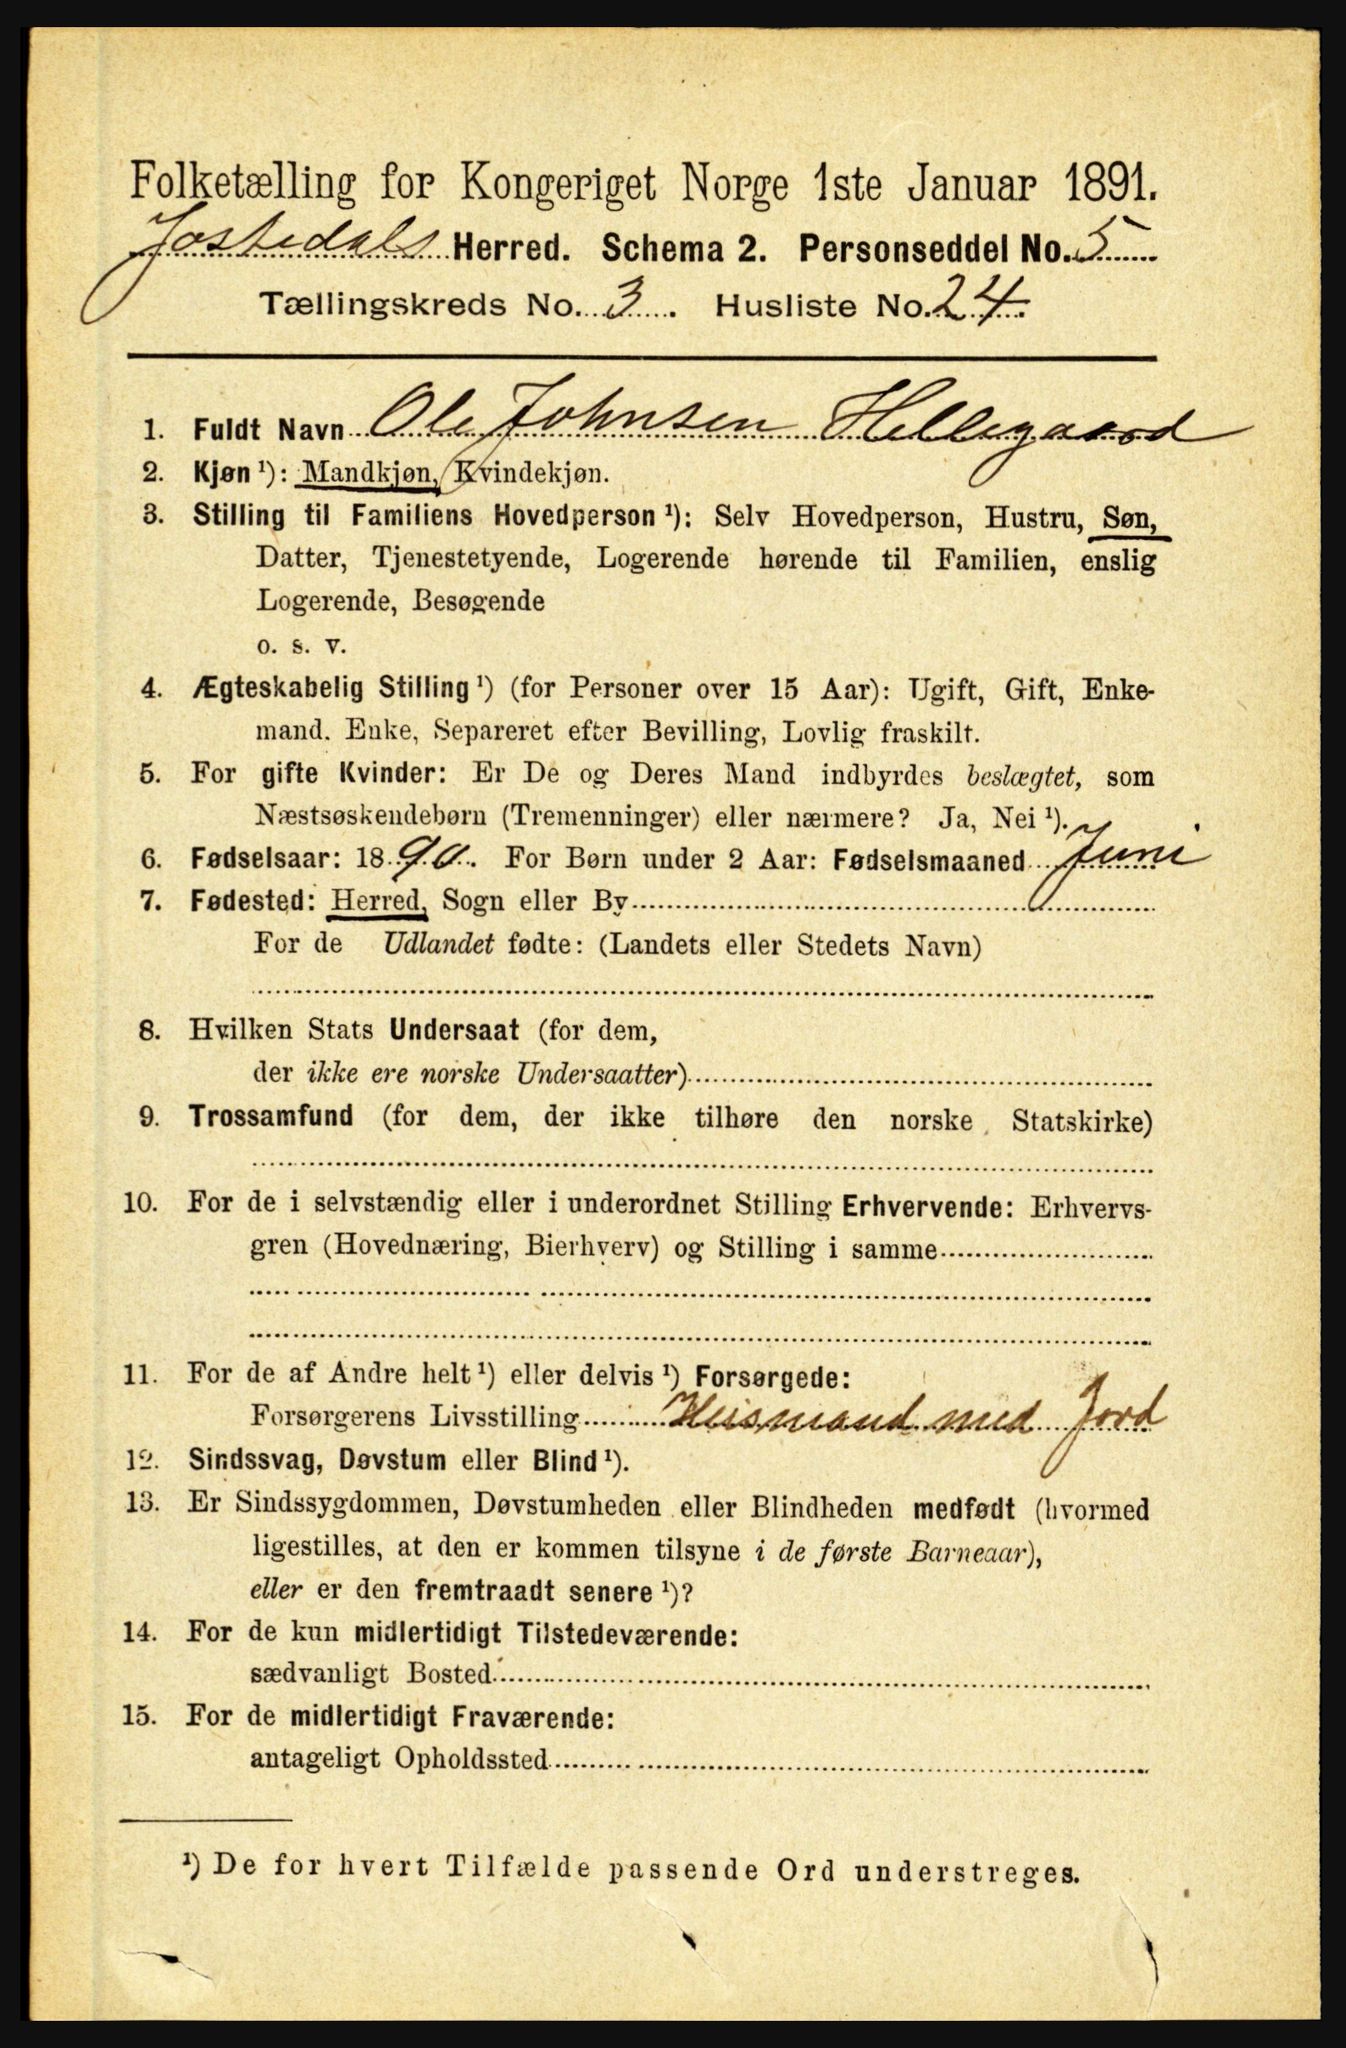 Folketælling for Kongeriget Norge 1ste Januar 1891.
Jostedals Herred. Schema 2. Personseddel No. 5
Tællingskreds No. 3. Husliste No. 24.
1. Fuldt Navn Ole Johnsen Hellegaard
2. Kjøn ¹): Mandkjøn, Kvindekjøn.
3. Stilling til Familiens Hovedperson ¹): Selv Hovedperson, Hustru, Søn,
Datter, Tjenestetyende, Logerende hørende til Familien, enslig
Logerende, Besøgende
o. s. v.
4. Ægteskabelig Stilling ¹) (for Personer over 15 Aar): Ugift, Gift, Enke-
mand, Enke, Separeret efter Bevilling, Lovlig fraskilt.
5. For gifte Kvinder: Er De og Deres Mand indbyrdes beslægtet, som
Næstsøskendebørn (Tremenninger) eller nærmere? Ja, Nei ¹).
6. Fødselsaar: 1890. For Børn under 2 Aar: Fødselsmaaned Juni
7. Fødested: Herred, Sogn eller By
For de Udlandet fødte: (Landets eller Stedets Navn)
8. Hvilken Stats Undersaat (for dem,
der ikke ere norske Undersaatter)
9. Trossamfund (for dem, der ikke tilhøre den norske Statskirke)
10. For de i selvstændig eller i underordnet Stilling Erhvervende: Erhvervs-
gren (Hovednæring, Bierhverv) og Stilling i samme
11. For de af Andre helt ¹) eller delvis ¹) Forsørgede:
Forsørgerens Livsstilling Husmand med Jord
12. Sindssvag, Døvstum eller Blind ¹).
13. Er Sindssygdommen, Døvstumheden eller Blindheden medfødt (hvormed
ligestilles, at den er kommen tilsyne i de første Barneaar),
eller er den fremtraadt senere ¹)?
14. For de kun midlertidigt Tilstedeværende:
sædvanligt Bosted
15. For de midlertidigt Fraværende:
antageligt Opholdssted
¹) De for hvert Tilfælde passende Ord understreges.